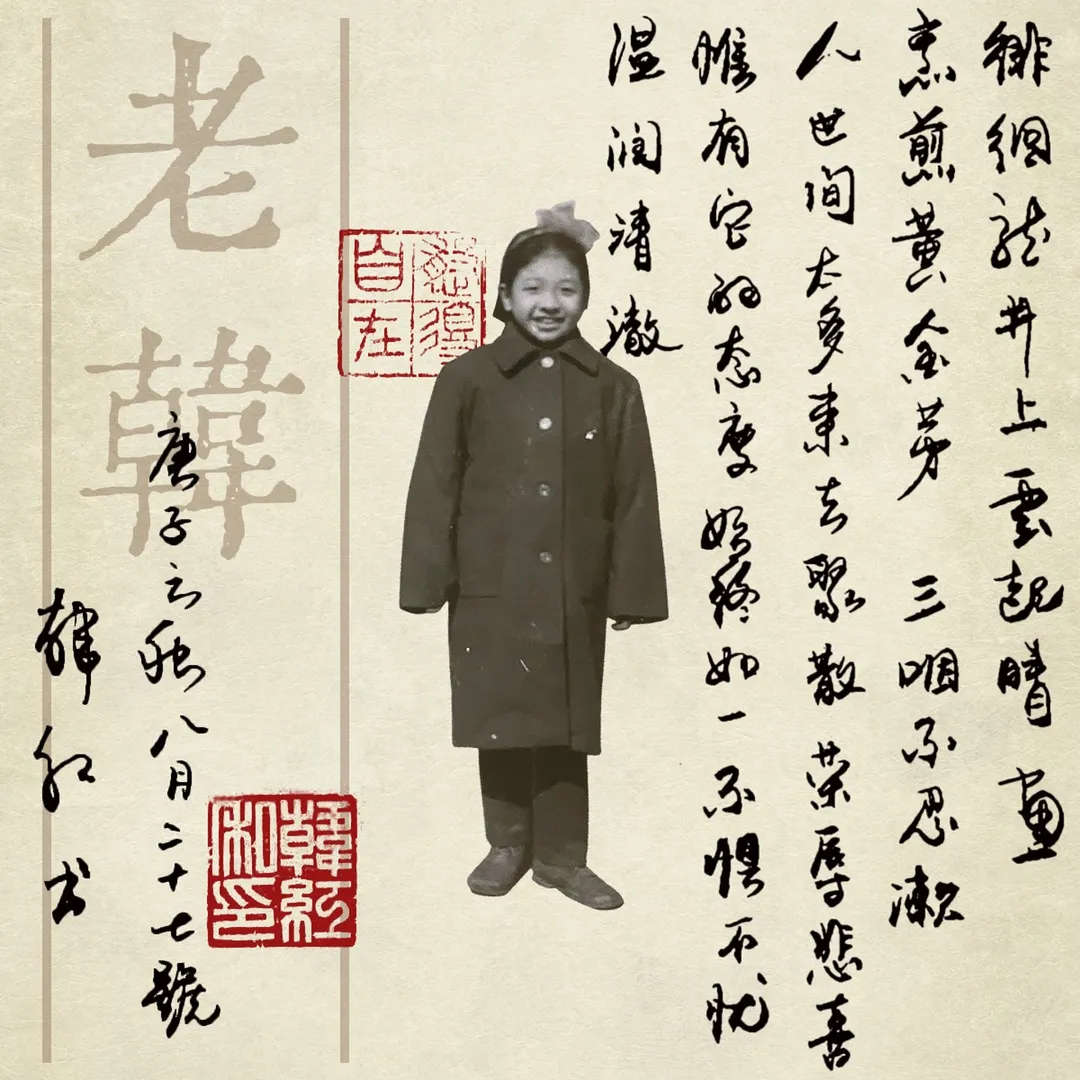 徘徊龍井上雲起晴畫
烹煎黄金芽 三咽不忍漱
人世间太多来去聚散荣辱悲喜
惟有它的态度始终如一不惧不忧
温润清澈
自在
老韓
庚子之秋八月二十七號
韓红书
韓紅私印